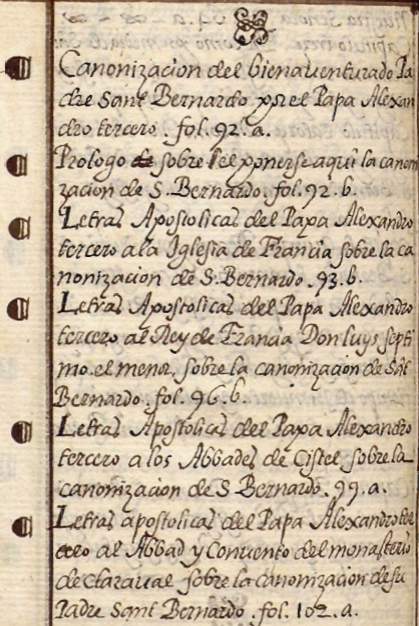 Canonizacion del bienauenturado Pa
dre Sant Bernardo por el Papa Alexan
dro tercero. fol. 92. a.
Prologo de sobre el ponerse aqui la canon
zacion de S. Bernardo. fol. 92. b.
Letras Apostolicas del Papa Alexandro
tercero a la Iglesia de Francia sobre la ca
nonizacion de S. Bernardo. 93. b.
Letras Apostolicas del Papa Alexandro
tercero al Rey de Francia Don luys septi
mo. el menor, sobre la canonizacion de Sāt
Bernardo. fol. 96. b.
Letras Apostolicas del Papa Alexandro
tercero a los Abbades de Cistel sobre la
canonizacion de S Bernardo. 99. a.
Letras apostolicas del Papa Alexandro ter
cero al Abbad y Conuento del monasterio
de claraual sobre la canonizacion de su
Padre Sant Bernardo. fol. 102. a.